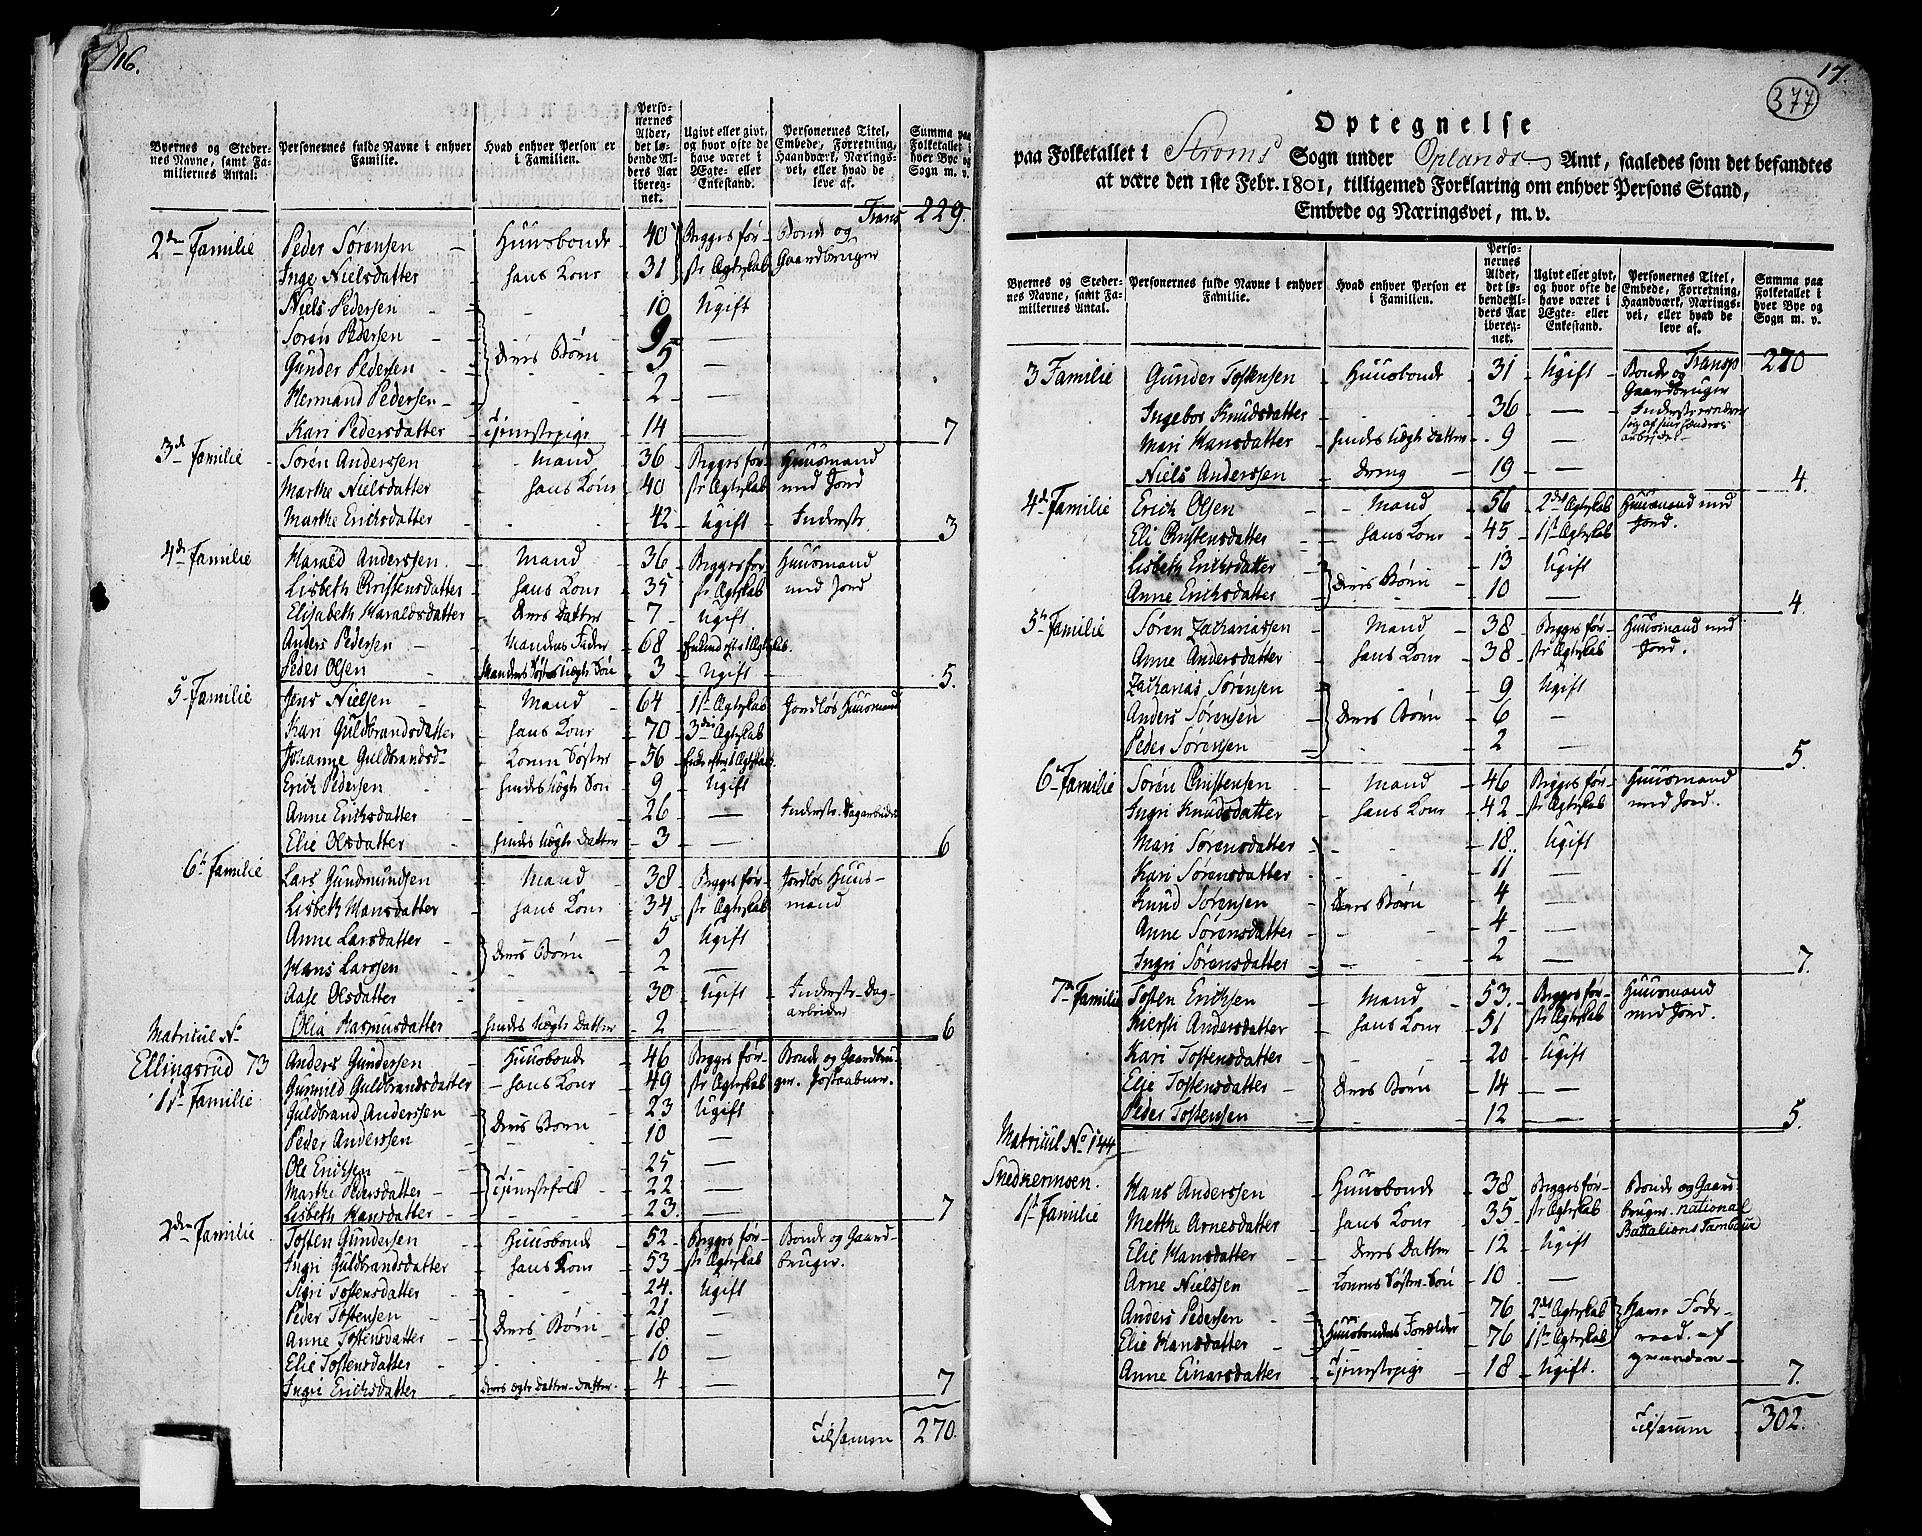 16.
Byernes og Steder-
nes Navne, samt Fa-
miliernes Antal.
Personernes fulde Navne i enhver
Familie.
Hvad enhver Person er
i Familien.
Perso-
nernes
Alder,
det lø-
bende Al-
ders Aar
ibereg-
net.
Ugivt eller givt,
og hvor ofte de
have været i
Ægte- eller
Enkestand.
Personernes Titel,
Embede, Forretning,
Haandværk, Nærings-
vei, eller hvad de
leve af.
Summa paa
Folketallet i
hver Bye og
Sogn m. v.
Trans 229.
2den Familie Peder Sørensen Huusbonde 40 Begge i før- Bonde og
Inge Nielsdatter hans Kone 31 ste Ægteskab Gaardbruger
Niels Pedersen 10 Ugift
Soren Pedersen 9 —
Gunder Pedersen deres Børn 5 —
Hermand Pedersen 2 —
Kari Pedersdatter Tjenestepige 14 — 7
3de Familie Soren Anderssen Mand 36 Begge i før- Huusmand
Marthe Nielsdatter hans Kone 40 ste Ægteskab med Jord
Marthe Erichsdatter 42 Ugift Inderste 3
4de Familie Harald Anderssen Mand 36 Begge i før- Huusmand
Lisbeth Christensdatter hans Kone 35 ste Ægteskab med Jord
Elisabeth Haraldsdatter deres Datter 7 Ugift
Anders Pedersen Mandens Fader 68 Enkemand efter 1 Ægteskab.
Peder Olsen Mandens Søsters Uægte Søn 3 Ugift 5.
5 Familie Jens Nielsen Mand 64 1ste Ægteskab Jordløs Huusmand
Kari Guldbrandsdatter hans Kone 70 3die Ægteskab
Johanne Guldbrandsd- Konens Søster 56 Enke efter 1 Ægteskab
Erich Pedersen hendes Uægte Søn 9 Ugift
Anne Erichsdatter 26 — Inderste Dagarbeider
Elie Olsdatter hendes Uægte Datter 3 — 6
6te Familie Lars Gundmundsen Mand 38 Begge i før- Jordløs Huus-
Lisbeth Hansdatter hans Kone 34 ste Ægteskab mand
Anne Larsdatter 5 Ugift
Hans Larssen deres Børn 2 —
Aase Olsdatter 30 Ugift Inderste Dag-
arbeider
Olia Rasmusdatter hendes Uægte Datter 2 — 6
Matricul No
Ellingsrud 73
1ste Familie
Anders Gundersen Huusbonde 46 Begge i før- Bonde og Gaardbru-
Gunnild Guldbrandsdatter hans Kone 49 ste Ægteskab ger.
Guldbrand Anderssen 23 Ugift
Peder Anderssen deres Børn 10 —
Ole Erichsen 25 —
Marthe Pedersdatter Tjenestefolk 22 —
Lisbeth Hansdatter 23 — 7
2den Familie Tosten Gundersen Huusbonde 52 Begge i før- Bonde og Gaard-
Ingri Guldbrandsdatter hans Kone 53 ste Ægteskab bruger.
Sigri Tostensdatter 24. Ugift
Peder Tostensen 21
Anne Tostensdatter deres Børn 18 —
Elie Tostensdatter 10 —
Ingri Erichsdatter deres Uægte Datter-Datter 4 — 7
Tilsamen 270.
17.
377
Optegnelse
paa Folketallet i Stroms Sogn under Oplands Amt, saaledes som det befandtes
at være den 1ste Febr. 1801, tilligemed Forklaring om enhver Persons Stand,
Embede og Næringsvei, m. v.
Byernes og Steder-
nes Navne, samt Fa-
miliernes Antal.
Personernes fulde Navne i enhver
Familie.
Hvad enhver Person er
i Familien.
Perso-
nernes
Alder,
det lø-
bende Al-
ders Aar
ibereg-
net.
Ugivt eller givt,
og hvor ofte de
have været i
Ægte- eller
Enkestand.
Personernes Titel,
Embede, Forretning,
Haandværk, Nærings-
vei, eller hvad de
leve af.
Summa paa
Folketallet i
hver Bye og
Sogn m. v.
Transp 270
3 Familie Gunder Tostensen Huusbonde 31 Ugift Bonde og
Gaardbruger
Ingebor Knudsdatter 36 — Inderste
Mari Hansdatter hendes Uægte Datter 9 —
Niels Anderssen dreng 19 — 4.
4de Familie Erich Olsen Mand 56 2det Ægteskab Huusmand med
Eli Christensdatter hans Kone 45 1ste Ægteskab Jord.
Lisbeth Erichsdatter 13 Ugift
Anne Erichsdatter deres Børn 10 — 4.
5te Familie Søren Zachariassen Mand 38 Begge i før- Huusmand med
Anne Andersdatter hans Kone 38 ste Ægteskab Jord.
Zacharias Sørensen 9 Ugift
Anders Sørensen deres Børn 6 —
Peder Sørensen 2 — 5.
6te Familie Søren Christensen Mand 46 Begge i før- Huusmand
Ingri Knudsdatter hans Kone 42 ste Ægteskab med Jord.
Mari Sørensdatter 18 Ugift
Kari Sørensdatter 11 —
Knud Sørensen deres Børn 4 —
Anne Sørensdatter 4 —
Ingri Sørensdatter 2 — 7.
7de Familie Tosten Erichsen Mand 53. Begge i før- Huusmand
Kiersti Andersdatter hans Kone 51 ste Ægteskab med Jord.
Kari Tostensdatter 20 Ugift
Elie Tostensdatter deres Børn 14 —
Peder Tostensen 12 — 5.
Matricul No 144
Snedkermoen.
1ste Familie
Hans Anderssen Huusbonde 38 Begge i før- Bonde og Gaard-
Metthe Arnesdatter hans Kone 35 ste Ægteskab bruger. national
Battalions Tambour
Elie Hansdatter deres Datter 12 Ugift
Arne Nielssen Konens Søster-Søn 10 —
Anders Pedersen 76 2det Ægteskab Have Føde-
Elie Hansdatter Huusbondens Forælder 76 1ste Ægteskab raad af
Anne Einarsdatter Tjenestepige 18 Ugift. gaarden 7.
Tilsamm 302.